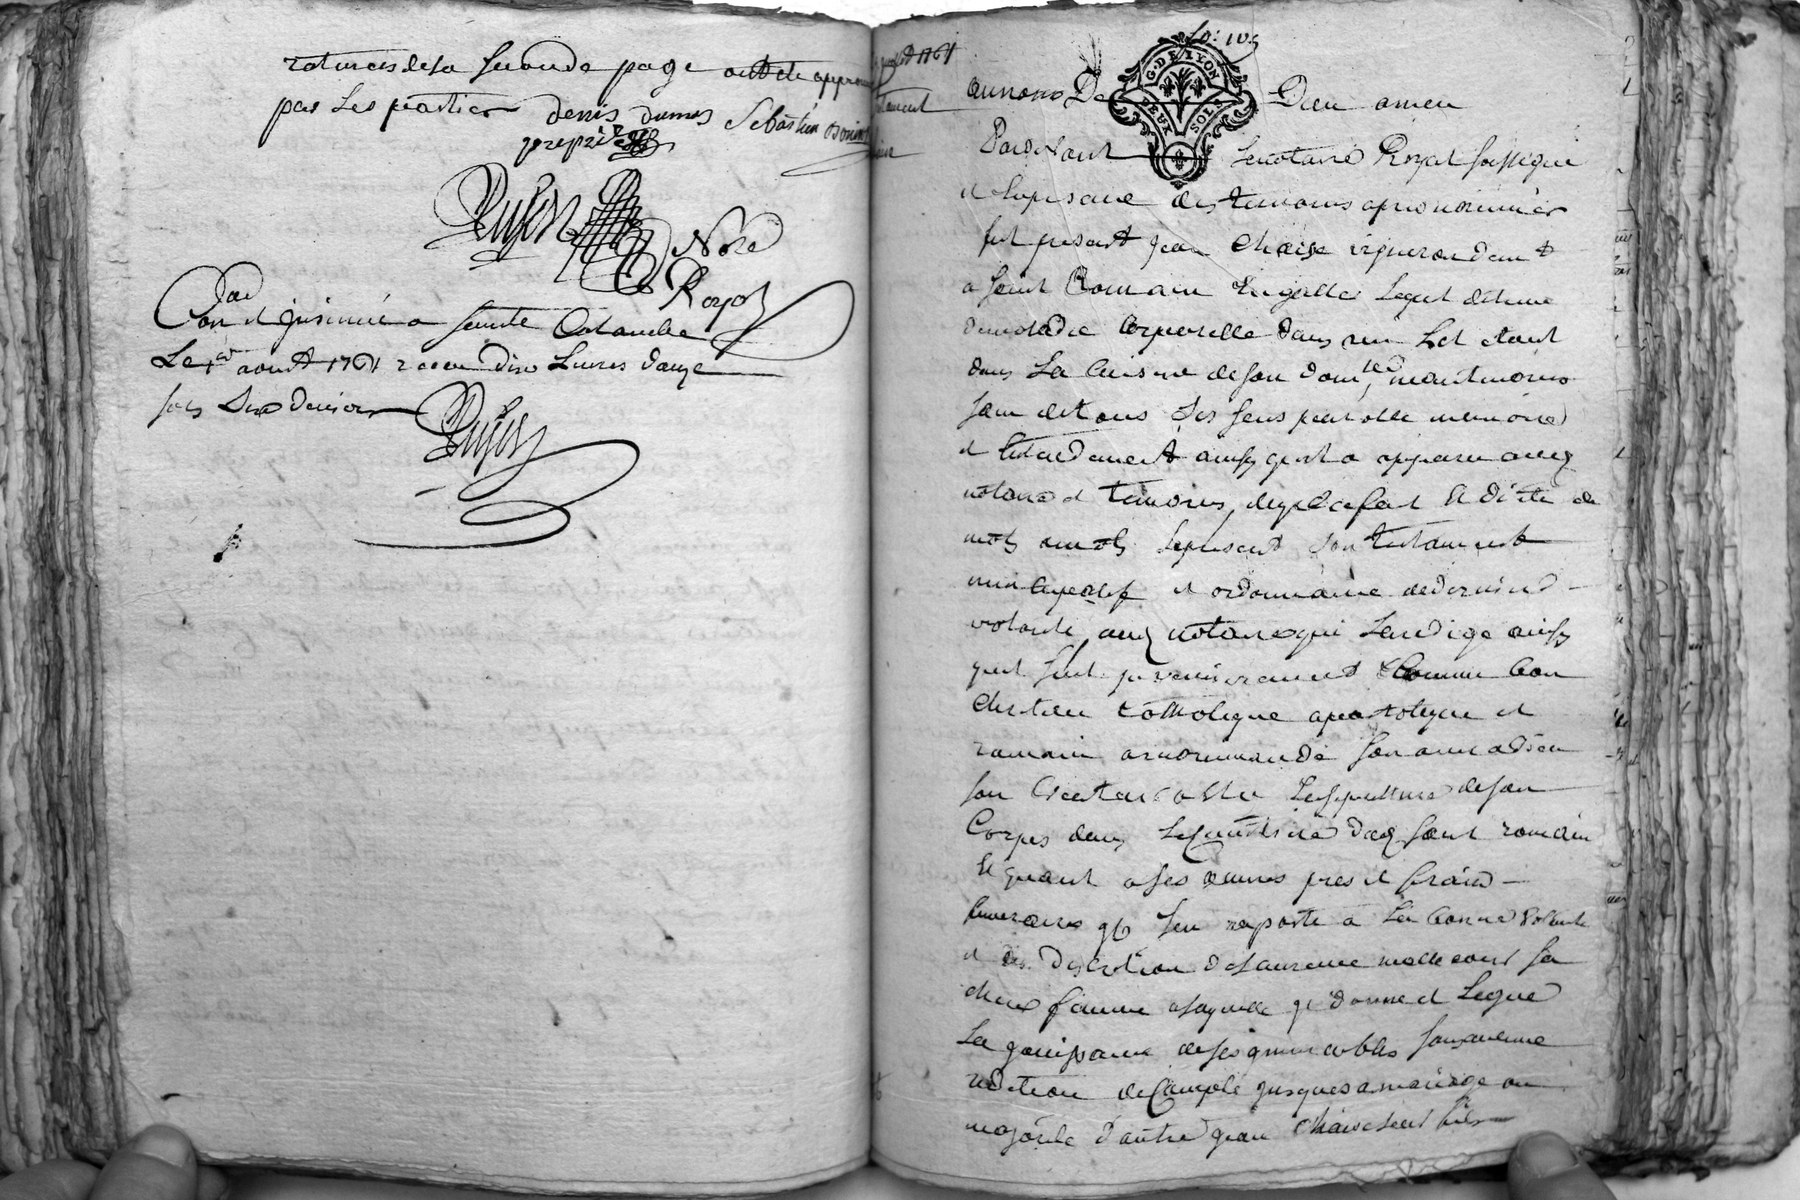 ratures de la seconde page ont ete approuvé
par les parties denis dumas Sebastien
Dujast Nore
Royal
Con.lé et insinué a sainte Colombe
Le 1er aoust 1761 receu dix Livres douze
sols six deniers
Dujast
aoust 1761
testament
G. DE LYON
DEUX SOLS
au nom De Dieu amen
Pardevant Le notaire Royal soussigné
et En presance des temoins apres nommés
fut present jean Chaize vigneron demt
a saint Romain En galle Lequel detenu
de maladie Corporelle dans un Lit etant
dans La Cuisine de son domicile, neantmoins
sain de tous ses sens parolle memoire
et Entendement ainsy qu'il a apparu auxd
notaire et temoins, de gré a fait Et dicté de
mots a mots Le present son testament
nuncupatif et ordonnance de derniere
volonté, aud notaire qui La redigé ainsy
quil suit premierement Comme bon
Chretien Catholique apostolique et
romain a recommandé son ame a dieu
son Createur Esleu La sepulture de son
Corps dans Le cimetiere dud saint romain
Et quant a ses aumones pres et frais
funeraires il s'en raporte a La bonne volonté
et discretion de Laurence mallecourt sa
chere femme a laquelle il donne et Legue
La jouissance de ses immeubles sans aucune
reddition de Compte jusques a mariage ou
majorité d'autre jean Chaize Leur fils